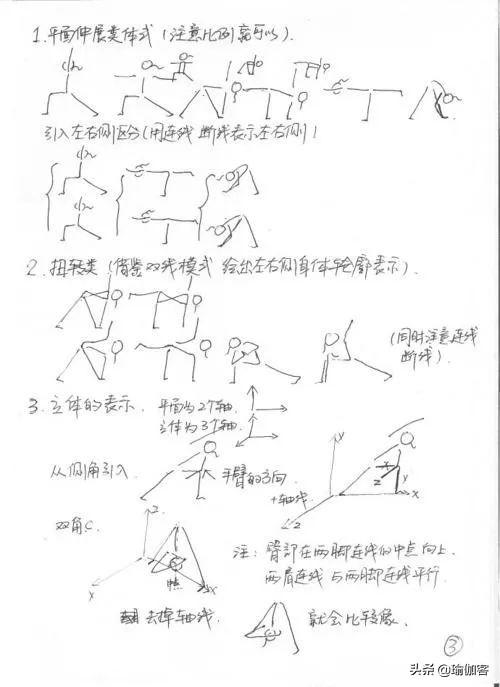 1.平面伸展类体式(注意比例离可以).
引入左右侧区分(用连线 断线表示左右侧)
2.扭转类(借鉴双线模式 绘出左右侧身体轮廓表示).
(同时注意连线
断线).
3.立体的表示. 平面为2个轴.
立体为3个轴.
从侧角引入
手臂的方向
+轴线
Y
Z
Y
X
Z
双角C.
Z
X
X
中点
注:臀部在两脚连线的中点向上.
两肩连线与两脚连线平行.
去掉轴线.
就会比较像.
③
头条 @瑜伽客